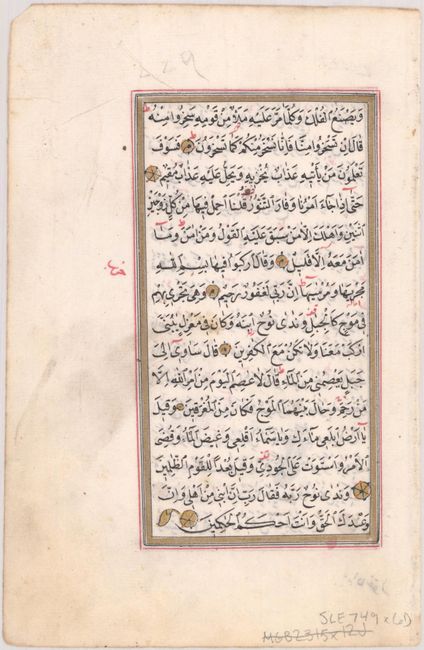 ويصنع الفلك وكلما مر عليه ملأ من قومه سخروا منه
قال ان تسخروا منا فانا نسخر منكم كما تسخرون فسوف
تعلمون من يأتيه عذاب يخزيه ويحل عليه عذاب مقيم
حتى اذا جاء امرنا وفار التنور قلنا احمل فيها من كل زوجين
اثنين واهلك الا من سبق عليه القول ومن امن وما
امن معه الا قليل وقال اركبوا فيها بسم الله
مجريها ومرسيها ان ربى لغفور رحيم وهى تجرى بهم
فى موج كالجبال ونادى نوح ابنه وكان فى معزل يبنى
اركب معنا ولا تكن مع الكفرين قال ساوى الى
جبل يعصمنى من الماء قال لا عاصم اليوم من امر الله الا
من رحم وحال بينهما الموج فكان من المغرقين وقيل
يا ارض ابلعى ماءك ويا سماء اقلعى وغيض الماء وقضى
الامر واستوت على الجودى وقيل بعدا للقوم الظلمين
ونادى نوح ربه فقال رب ان ابنى من اهلى وان
وعدك الحق وانت احكم الحكمين
SLE749x(6D)
MGBZ315x12J